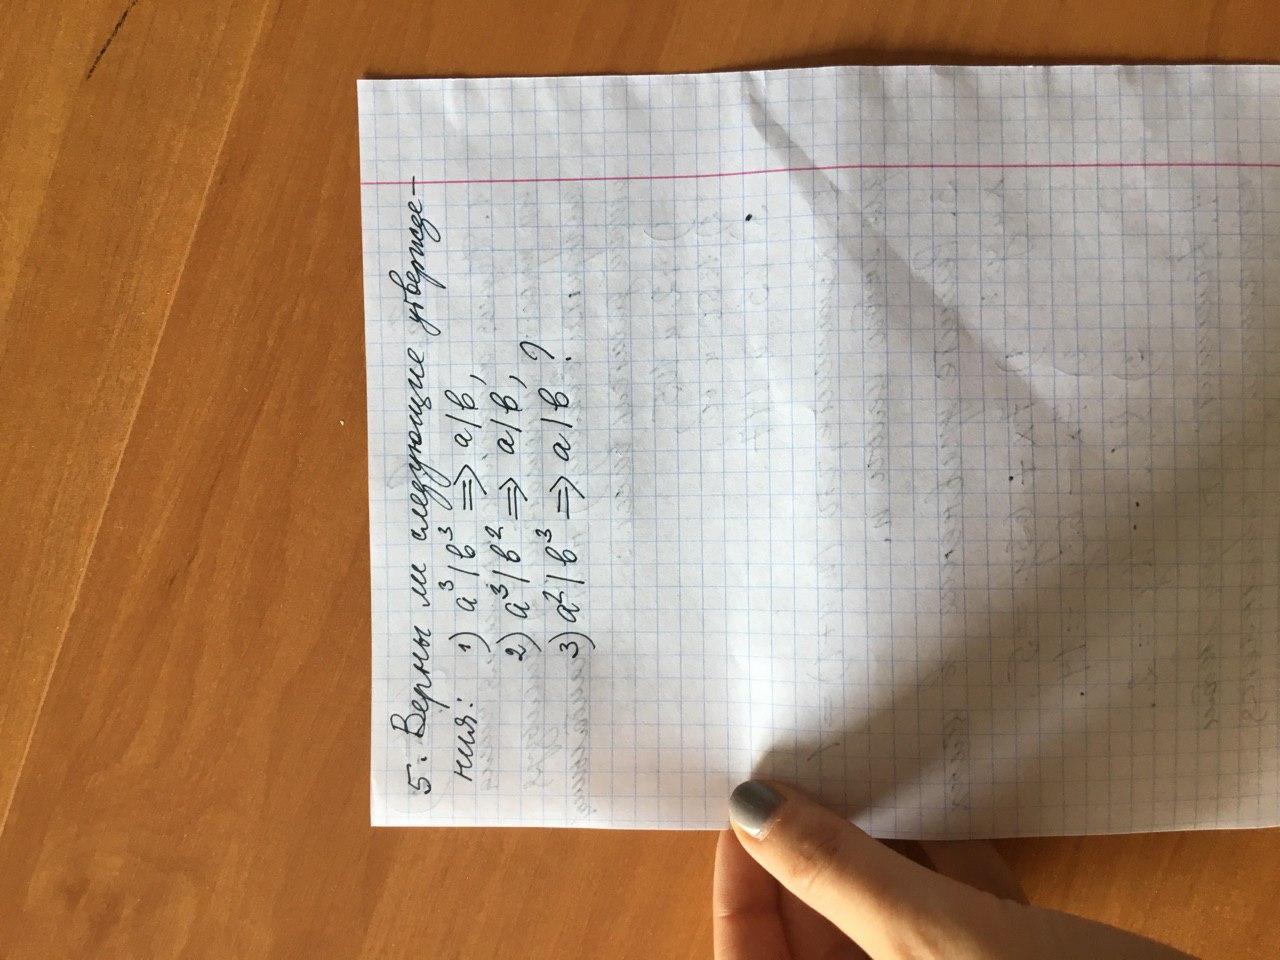 5. Верны ли следующие утвержде-
ния: 1) a³/b³ => a/b,
2) a³/b² => a/b,
3) a²/b³ => a/b ?